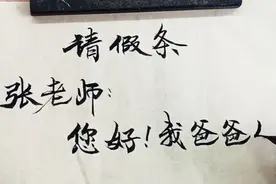 请假条
张老师：
您好！我爸爸